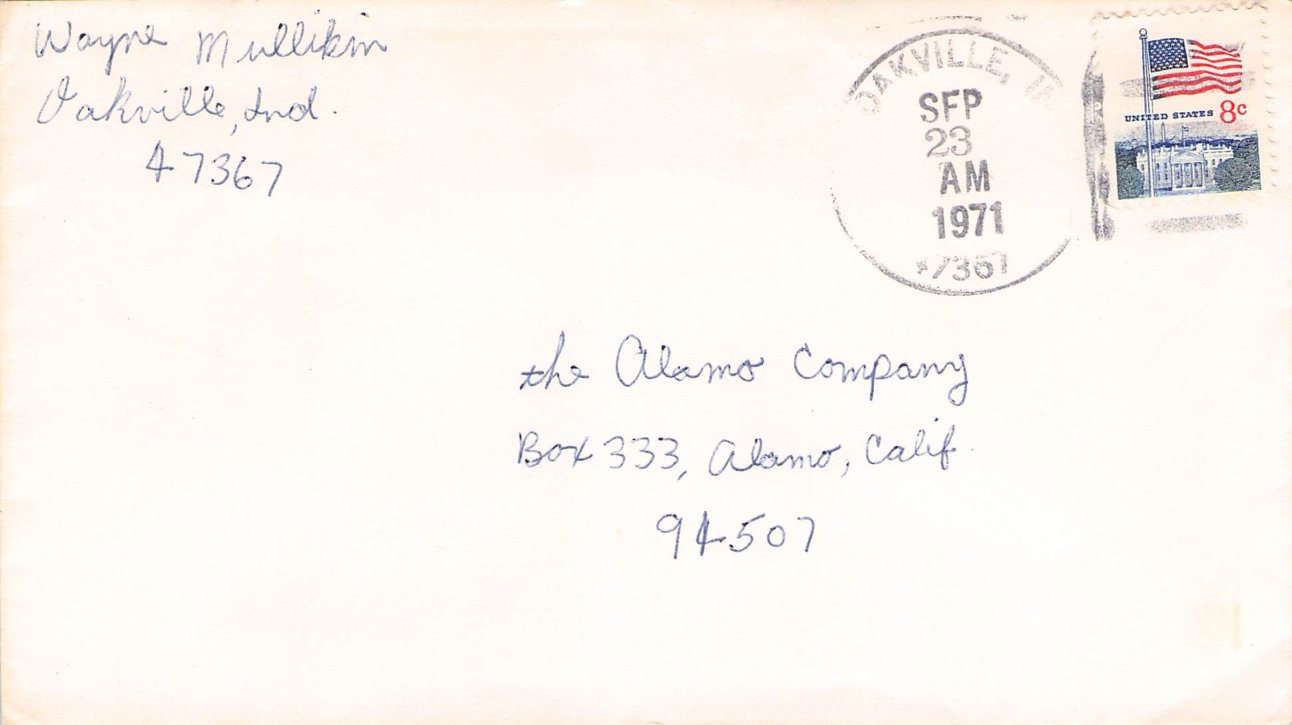 Wayne Mullikin
Oakville, Ind.
47367
OAKVILLE,
SEP
23
AM
1971
47367
UNITED STATES 8c
the Alamo Company
Box 333, Alamo, Calif.
94507